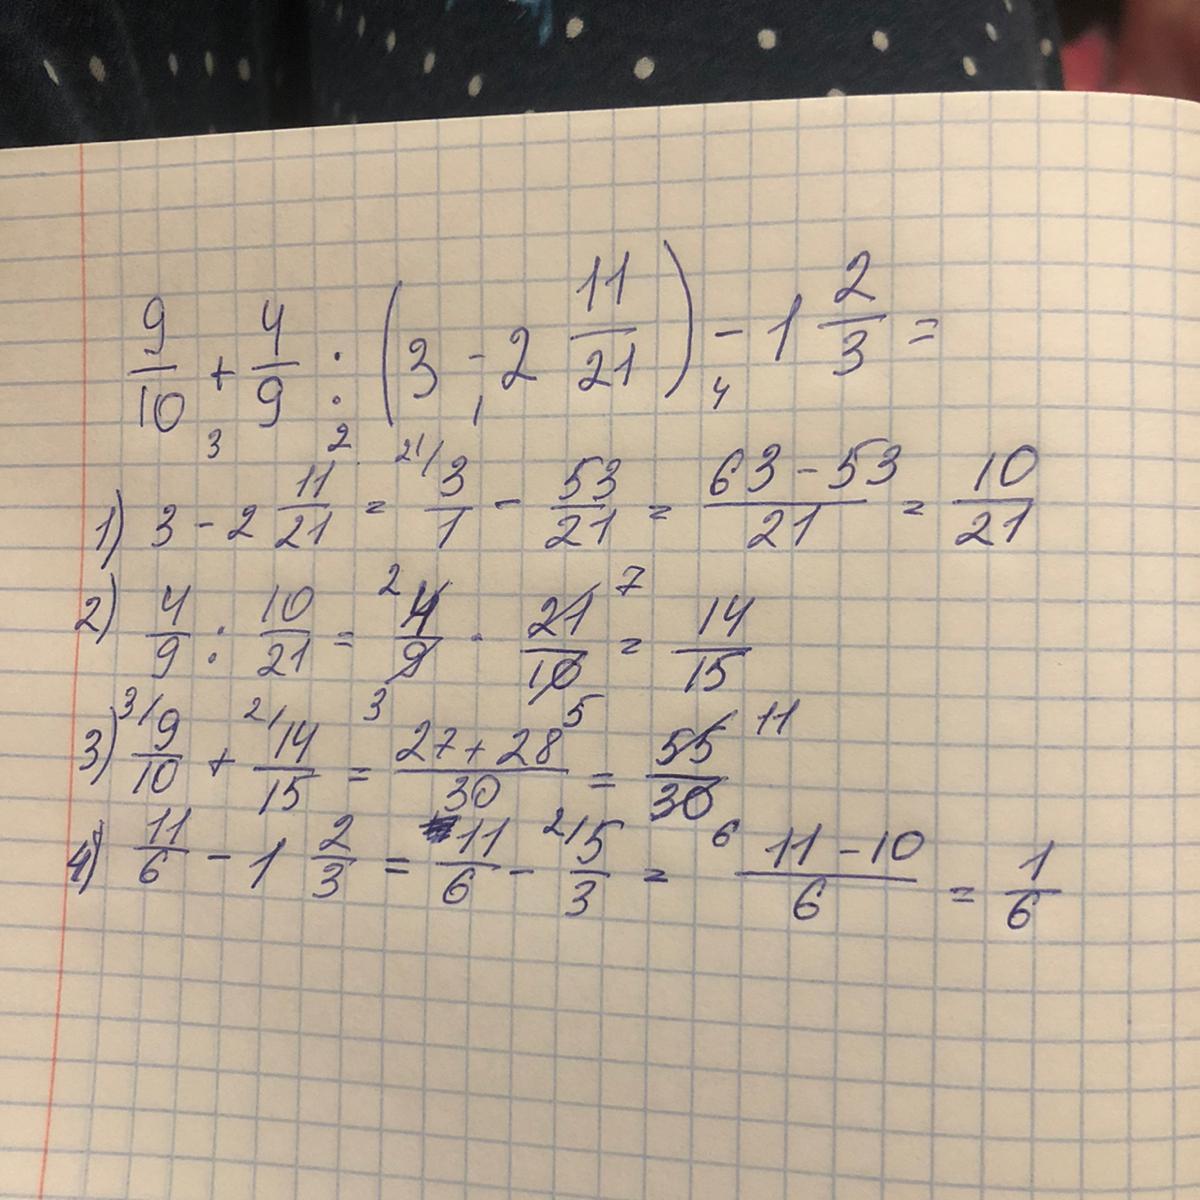 9/10 + 4/9 : (3 - 2 11/21) - 1 2/3 =
3 2 1 4
1) 3 - 2 11/21 = 21/ 3/1 - 53/21 = 63-53/21 = 10/21
2) 4/9 : 10/21 = 2 4/9 3 · 21/10 7 5 = 14/15
3) 3/ 9/10 + 2/ 14/15 = 27+28/30 = 55/30 11 6
4) 11/6 - 1 2/3 = 11/6 - 2/ 5/3 = 11-10/6 = 1/6